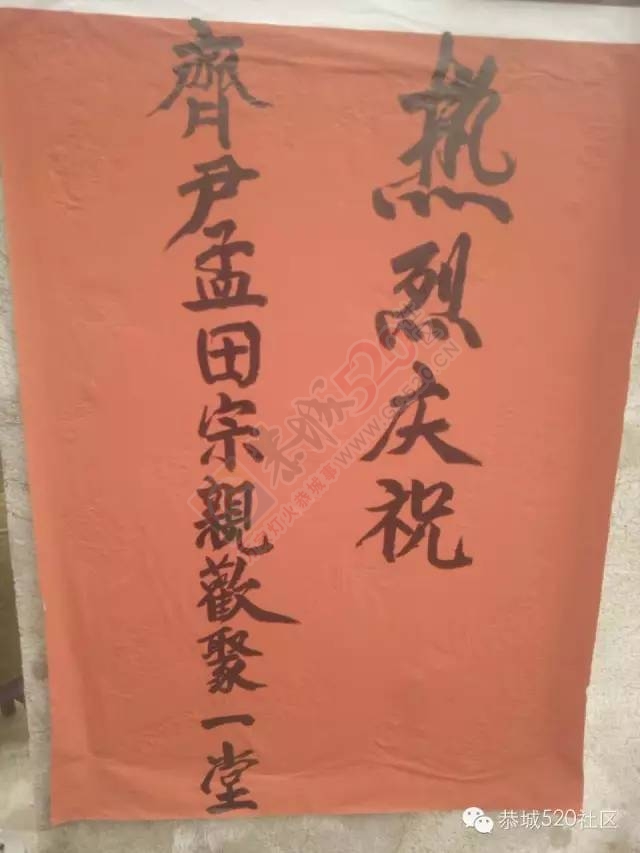 热烈庆祝
齊尹孟田宗親歡聚一堂
恭城520
WWW.GC520.CN
灯火恭城事
恭城520社区